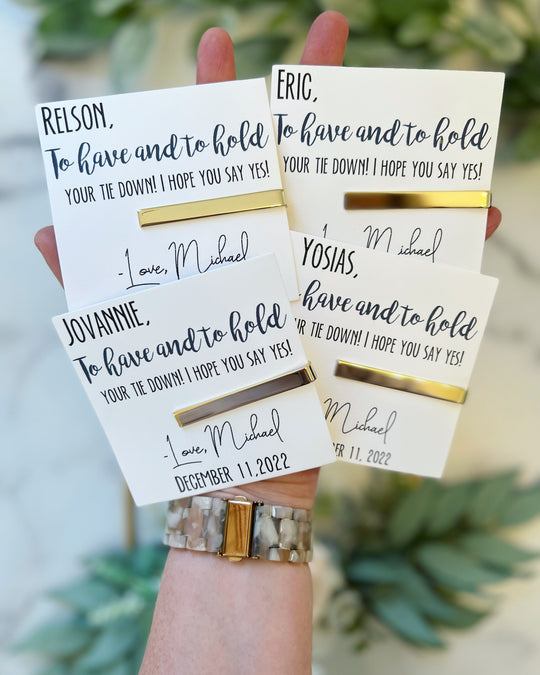 RELSON,
To have and to hold
YOUR TIE DOWN! I HOPE YOU SAY YES!
-Love, Michael
ERIC,
To have and to hold
YOUR TIE DOWN! I HOPE YOU SAY YES!
Michael
JOVANNIE,
To have and to hold
YOUR TIE DOWN! I HOPE YOU SAY YES!
-Love, Michael
DECEMBER 11,2022
YOSIAS,
have and to hold
YOUR TIE DOWN! I HOPE YOU SAY YES!
Michael
11, 2022